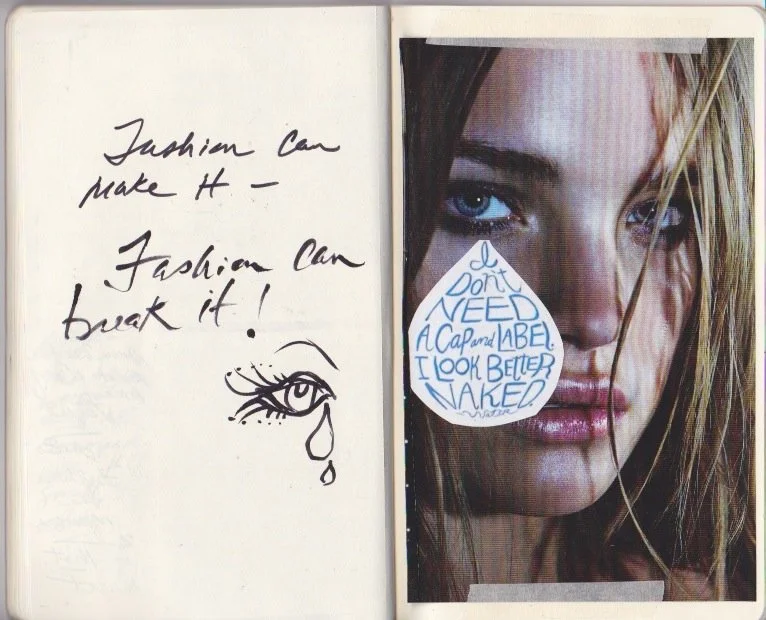 Fashion can
make it –
Fashion can
break it!
I
Don't
NEED
A CAP and LABEL.
I LOOK BETTER
NAKED.
~Water